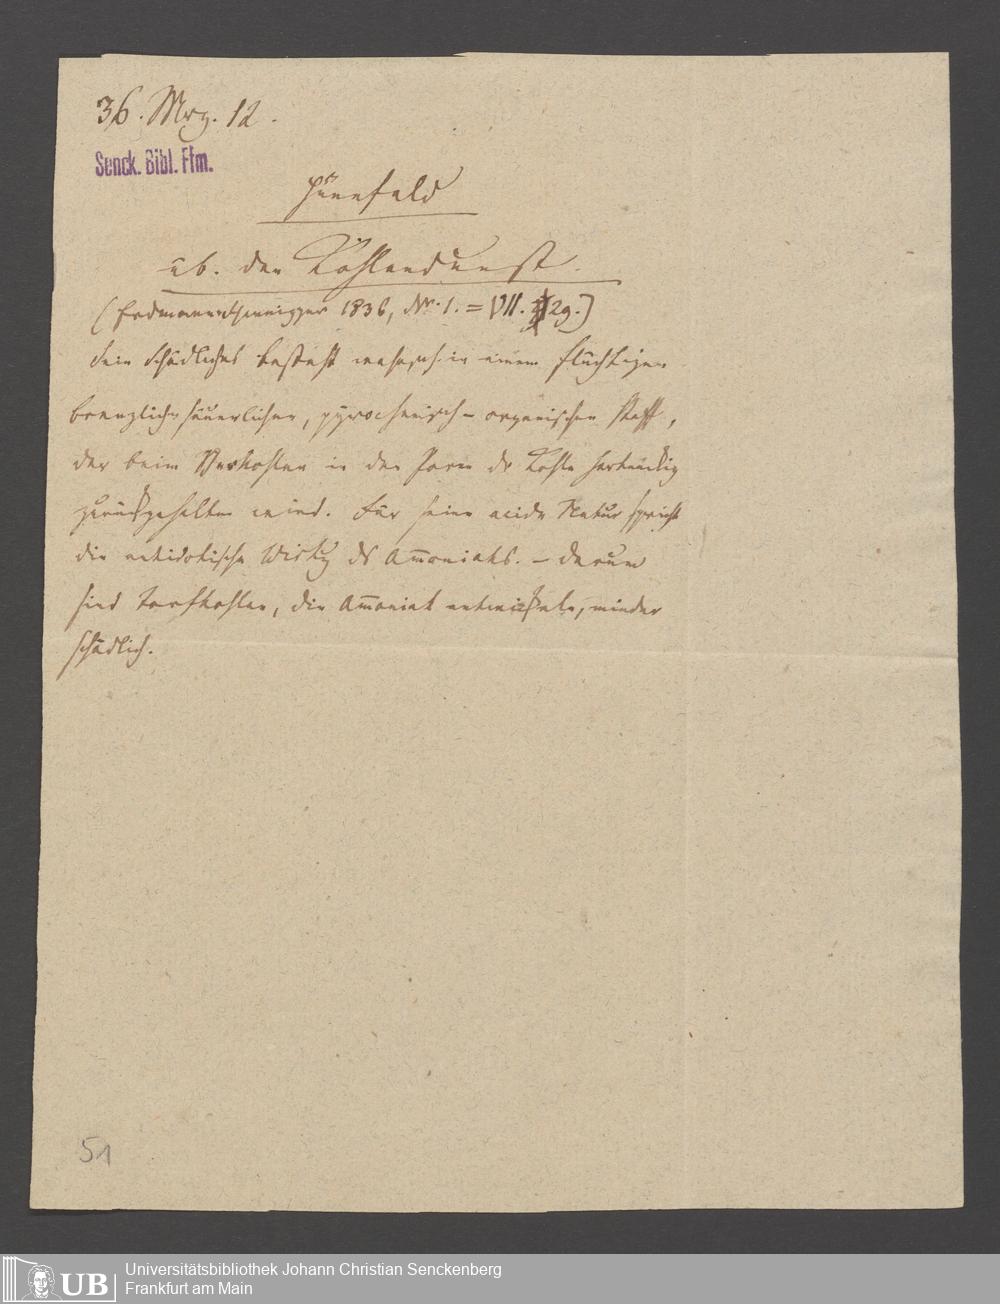 36. Mrz. 12.
Senck. Bibl. Ffm.
Hünefeld
üb. den Kohlendunst.
(Erdmann u Schweigger 1836, Nr. 1. = VII. 29.)
Sein Schädliches besteht wahrsch. in einem flüchtigen
brenzlich-säuerlichen, pyrochemisch-organischen Stoff,
der beim Verkohlen in den Poren der Kohle hartnäckig
zurückgehalten wird. Für seine acide Natur spricht
die antidotische Wirkg ds Amoniaks. – Darum
sind Torfkohlen, die Amoniak entwickeln, minder
schädlich.
51
UB
Universitätsbibliothek Johann Christian Senckenberg
Frankfurt am Main